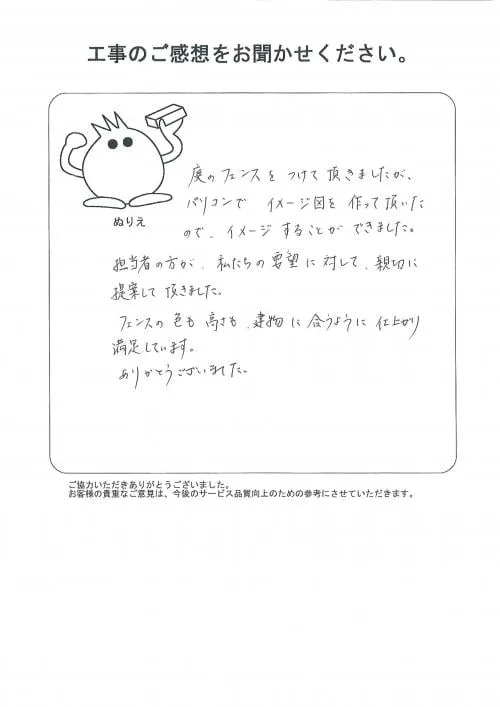 工事のご感想をお聞かせください。
ぬりえ
庭のフェンスを つけて 頂きましたが、
パソコンで イメージ図を 作って 頂いた
ので、イメージ することが できました。
担当者の方が、私たちの 要望に 対して、親切に
提案して 頂きました。
フェンスの 色も 高さも、建物に 合うように 仕上がり
満足しています。
ありがとうございました。
ご協力いただきありがとうございました。
お客様の貴重なご意見は、今後のサービス品質向上のための参考にさせていただきます。